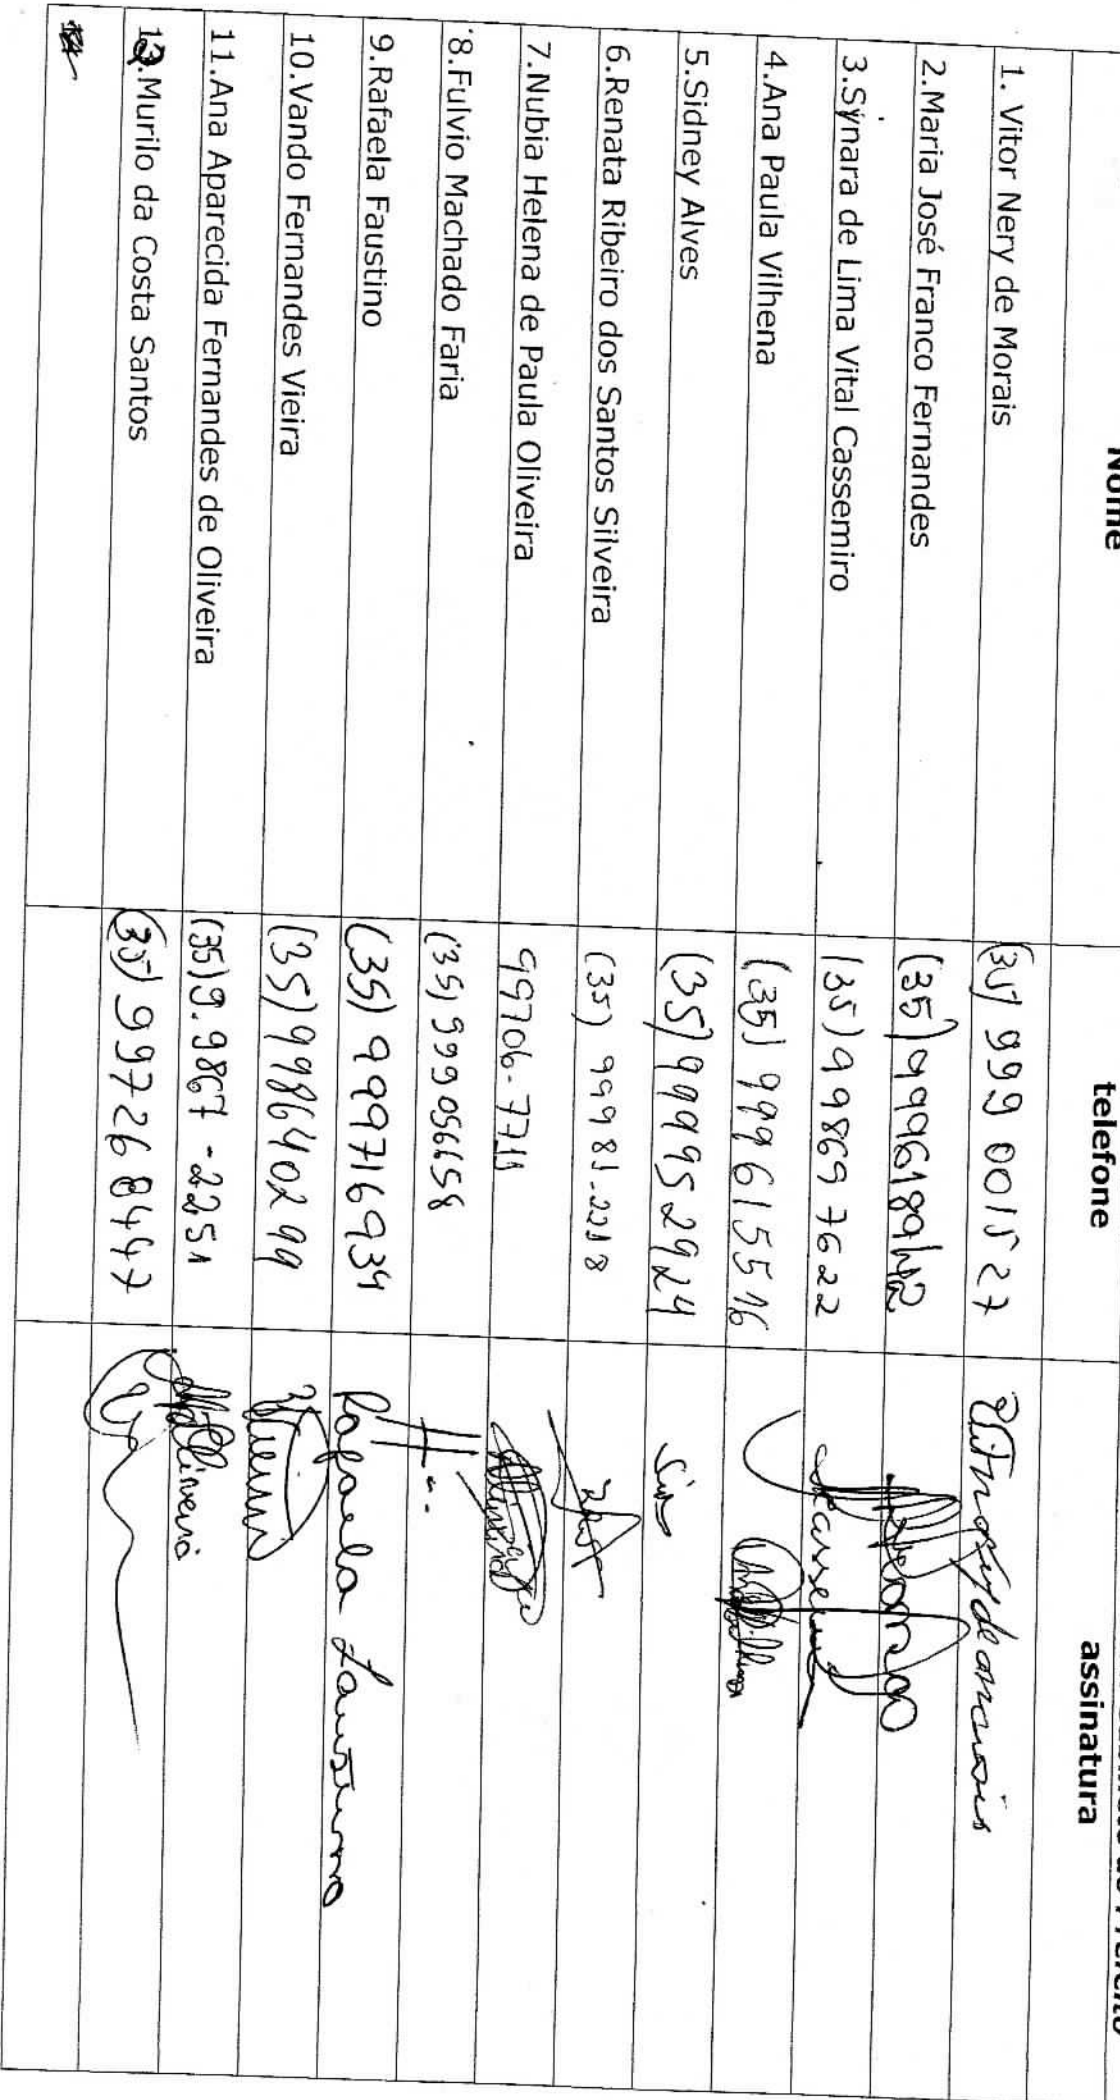 Nome telefone assinatura
1. Vitor Nery de Morais (35) 999 001527
2.Maria José Franco Fernandes (35)
3.Synara de Lima Vital Cassemiro (35) 99869 7622
4.Ana Paula Vilhena (35) 999615516
5.Sidney Alves (35) 999952924
6.Renata Ribeiro dos Santos Silveira (35) 99981-2218
7.Nubia Helena de Paula Oliveira 99706-7711
8.Fulvio Machado Faria (35) 999056658
9.Rafaela Faustino (35) 999716934 Rafaela Faustino
10.Vando Fernandes Vieira (35) 998640299
11.Ana Aparecida Fernandes de Oliveira (35)9.9867-2251
12.Murilo da Costa Santos (35) 997268447